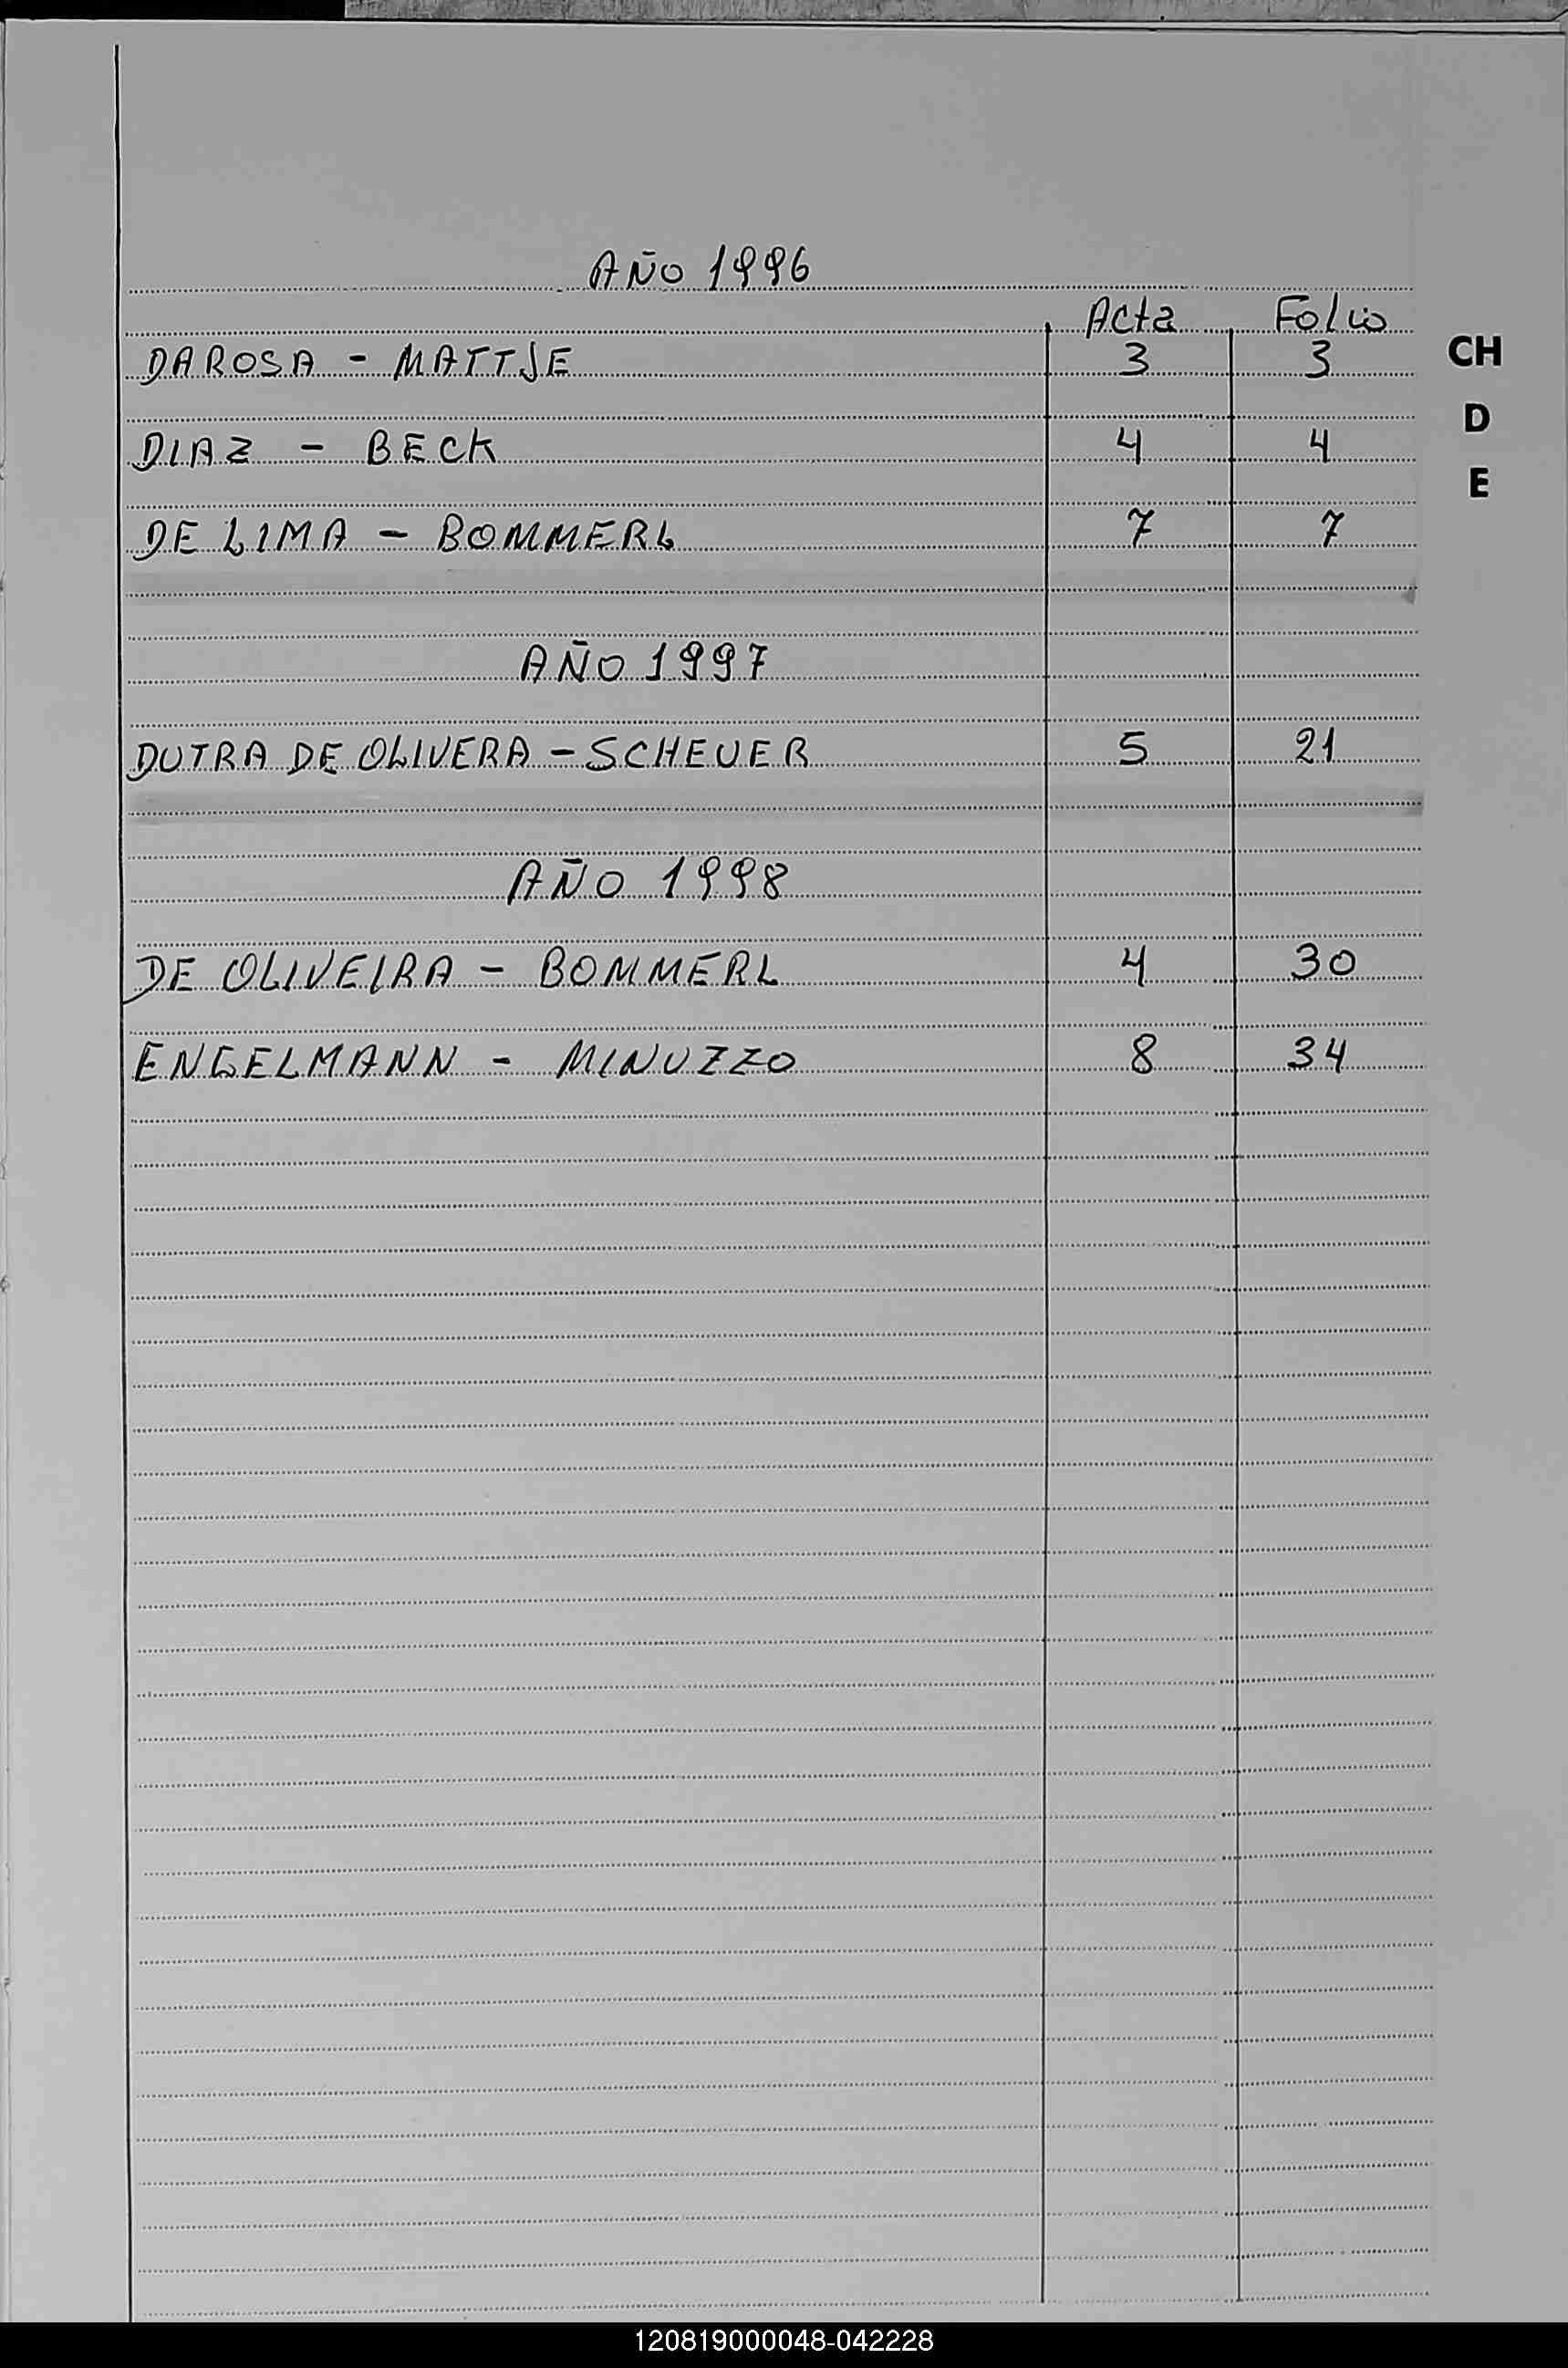 AÑO 1996
Acta Folio
DAROSA - MATTJE 3 3
CH
D
DIAZ - BECK 4 4
E
DE LIMA - BOMMERL 7 7
AÑO 1997
DUTRA DE OLIVERA - SCHEUER 5 21
AÑO 1998
DE OLIVEIRA - BOMMERL 4 30
ENGELMANN - MINUZZO 8 34
120819000048-042228